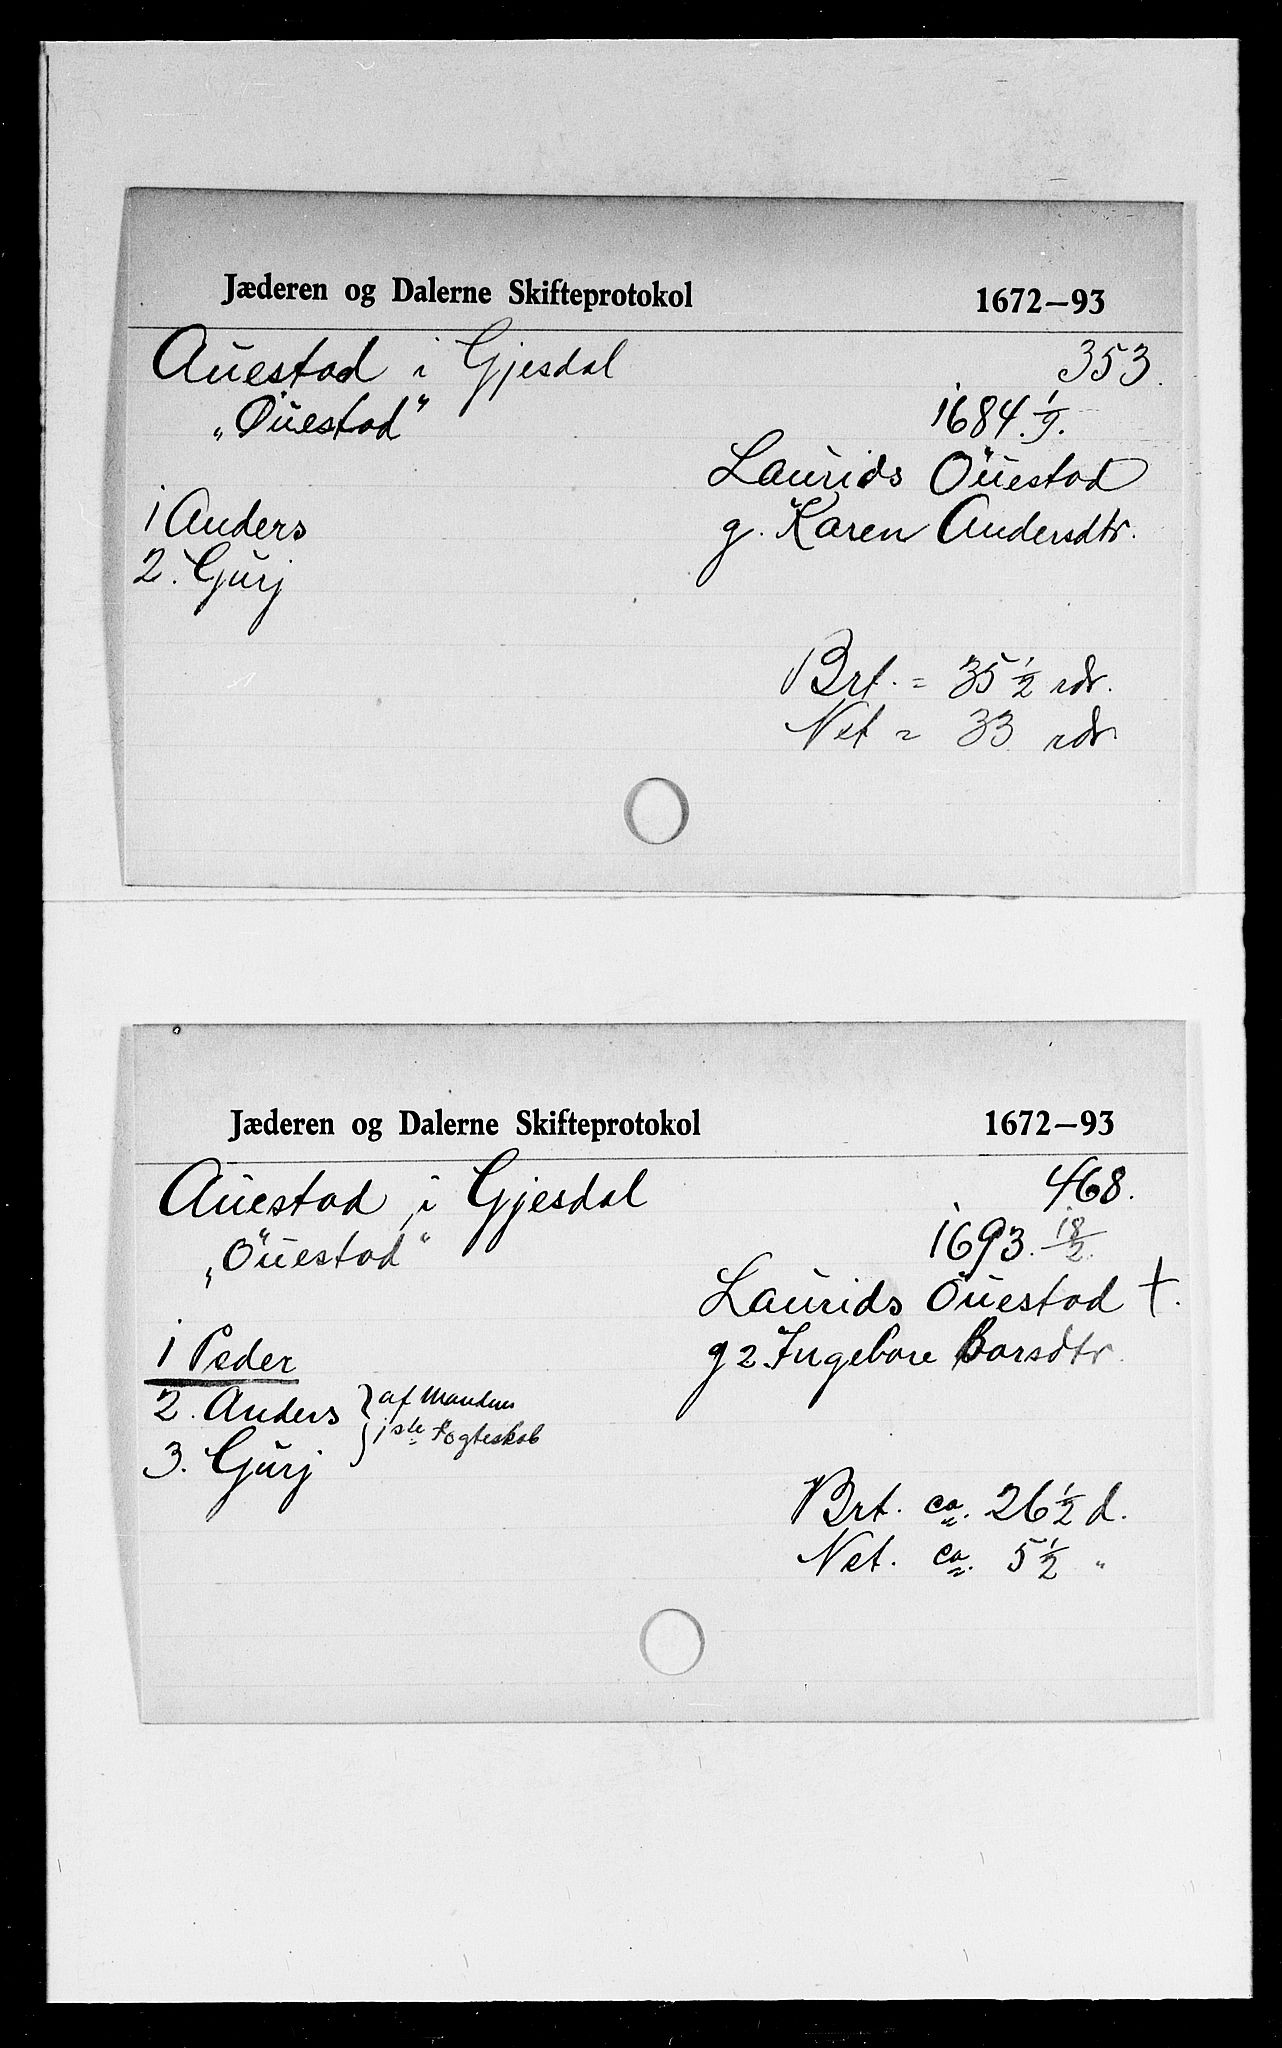 Jæderen og Dalerne Skifteprotokol 1672–93
Auestad i Gjesdal 353.
„Öuestad" 1684. 1/9.
Laurids Öuestad
1 Anders g. Karen Andersdtr.
2. Gurj
Brt. = 35 1/2 rdr.
Net = 33 rdr
Jæderen og Dalerne Skifteprotokol 1672–93
Auestad i Gjesdal 468.
„Öuestad" 1693. 18/2.
Laurids Öuestad †.
1 Peder g 2. Ingebore Barsdtr.
2. Anders } af Mandens
3. Gurj 1ste Egteskab
Brt. ca. 26 1/2 d.
Net. ca. 5 1/2 "